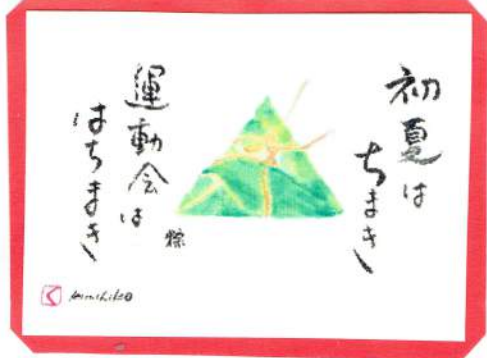 初夏は
ちまき
運動会は
はちまき
粽
く